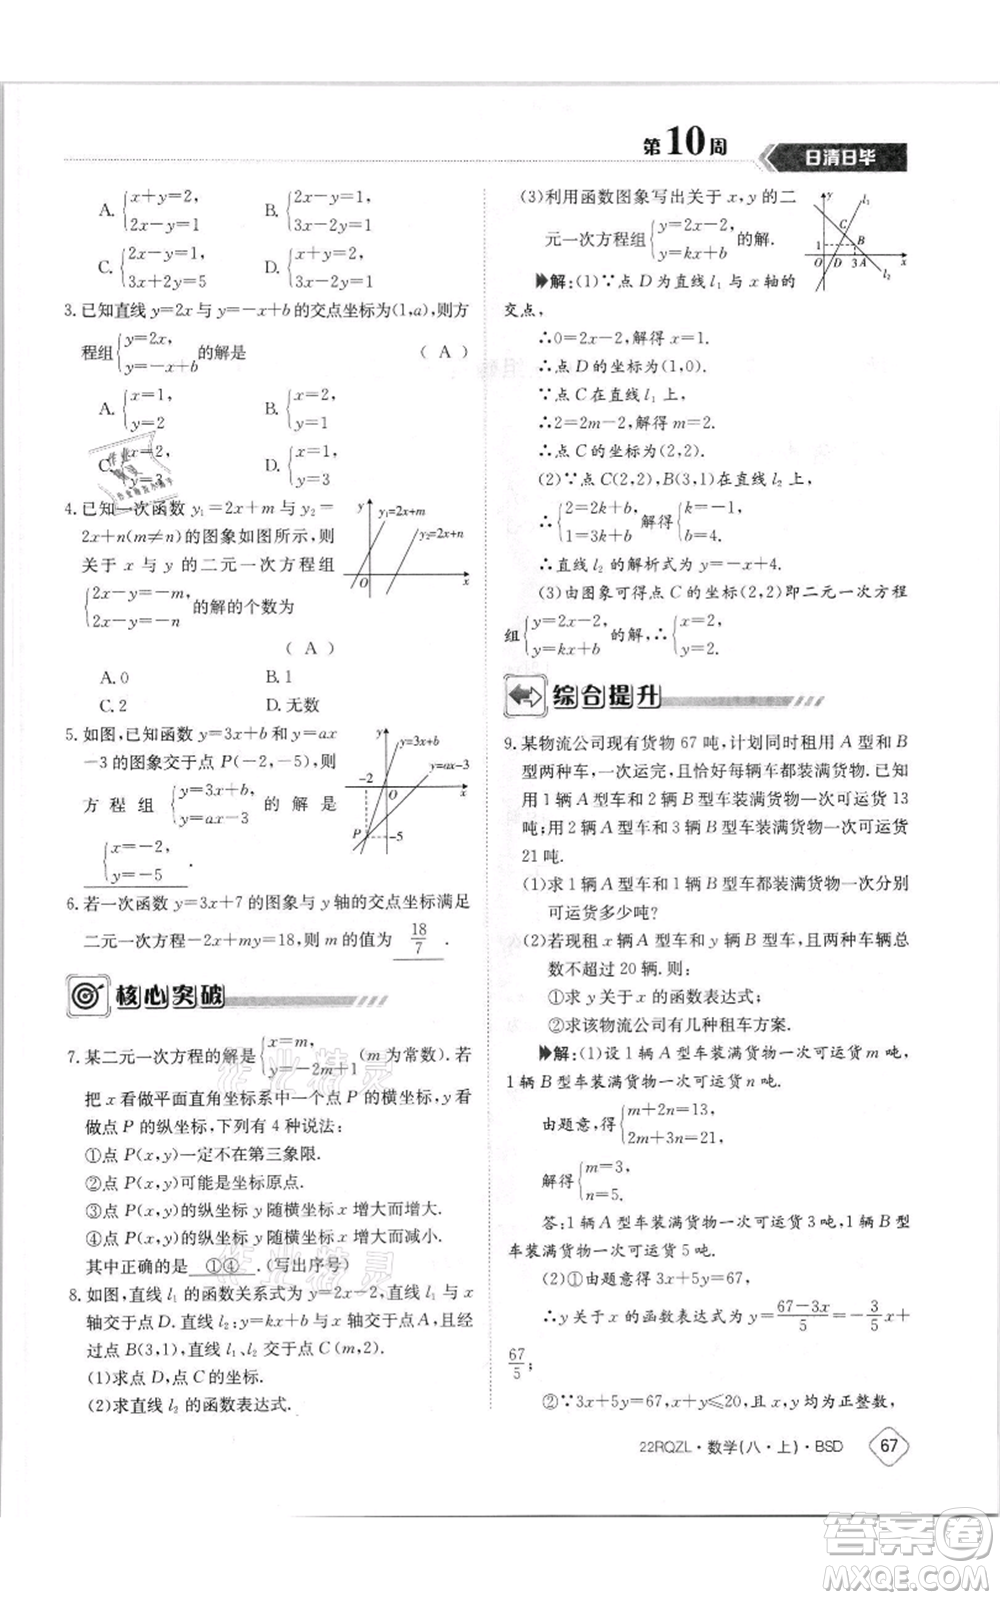 第10周
日清日毕
A. {x+y=2, 2x-y=1 B. {2x-y=1, 3x-2y=1
C. {2x-y=1, 3x+2y=5 D. {2x-y=1, 3x-2y=1
3. 已知直线 y=2x 与 y=-x+b 的交点坐标为(1,a),则方
程组{y=2x, y=-x+b 的解是 ( A )
A. {x=1, y=2 B. {x=2, y=1
C. {x=2, y=3 D. {x=1, y=3
4. 已知一次函数 y₁=2x+m 与 y₂=
2x+n(m≠n)的图象如图所示,则
关于 x 与 y 的二元一次方程组
{2x-y=-m, 2x-y=-n 的解的个数为
( A )
A. 0 B. 1
C. 2 D. 无数
y y₁=2x+m
y₂=2x+n
O x
5. 如图,已知函数 y=3x+b 和 y=ax
-3 的图象交于点 P(-2,-5),则
方程组{y=3x+b, y=ax-3 的解是
{x=-2, y=-5 .
y y=3x+b
y=ax-3
-2 O x
P -5
6. 若一次函数 y=3x+7 的图象与 y 轴的交点坐标满足
二元一次方程-2x+my=18,则 m 的值为 18/7 .
核心突破
7. 某二元一次方程的解是{x=m, y=-2m+1 (m 为常数). 若
把 x 看做平面直角坐标系中一个点 P 的横坐标,y 看
做点 P 的纵坐标,下列有 4 种说法:
①点 P(x,y)一定不在第三象限.
②点 P(x,y)可能是坐标原点.
③点 P(x,y)的纵坐标 y 随横坐标 x 增大而增大.
④点 P(x,y)的纵坐标 y 随横坐标 x 增大而减小.
其中正确的是 ①④ . (写出序号)
8. 如图,直线 l₁ 的函数关系式为 y=2x-2,直线 l₁ 与 x
轴交于点 D. 直线 l₂:y=kx+b 与 x 轴交于点 A,且经
过点 B(3,1),直线 l₁、l₂ 交于点 C(m,2).
(1)求点 D,点 C 的坐标.
(2)求直线 l₂ 的函数表达式.
(3)利用函数图象写出关于 x,y 的二
元一次方程组{y=2x-2, y=kx+b 的解.
y l₁
C
1 B
O D 3 A x
l₂
解:(1)∵点 D 为直线 l₁ 与 x 轴的
交点,
∴0=2x-2,解得 x=1.
∴点 D 的坐标为(1,0).
∵点 C 在直线 l₁ 上,
∴2=2m-2,解得 m=2.
∴点 C 的坐标为(2,2).
(2)∵点 C(2,2),B(3,1)在直线 l₂ 上,
∴{2=2k+b, 1=3k+b 解得{k=-1, b=4.
∴直线 l₂ 的解析式为 y=-x+4.
(3)由图象可得点 C 的坐标(2,2)即二元一次方程
组{y=2x-2, y=kx+b 的解,∴{x=2, y=2.
综合提升
9. 某物流公司现有货物 67 吨,计划同时租用 A 型和 B
型两种车,一次运完,且恰好每辆车都装满货物. 已知
用 1 辆 A 型车和 2 辆 B 型车装满货物一次可运货 13
吨;用 2 辆 A 型车和 3 辆 B 型车装满货物一次可运货
21 吨.
(1)求 1 辆 A 型车和 1 辆 B 型车都装满货物一次分别
可运货多少吨?
(2)若现租 x 辆 A 型车和 y 辆 B 型车,且两种车辆总
数不超过 20 辆. 则:
①求 y 关于 x 的函数表达式;
②求该物流公司有几种租车方案.
解:(1)设 1 辆 A 型车装满货物一次可运货 m 吨,
1 辆 B 型车装满货物一次可运货 n 吨.
由题意,得{m+2n=13, 2m+3n=21,
解得{m=3, n=5.
答:1 辆 A 型车装满货物一次可运货 3 吨,1 辆 B 型
车装满货物一次可运货 5 吨.
(2)①由题意得 3x+5y=67,
∴y 关于 x 的函数表达式为 y=(67-3x)/5=-3/5x+
67/5;
②∵3x+5y=67,x+y≤20,且 x,y 均为正整数,
22RQZL·数学(八·上)·BSD 67
作业精灵
作业精灵
答案卷
MXQE.COM